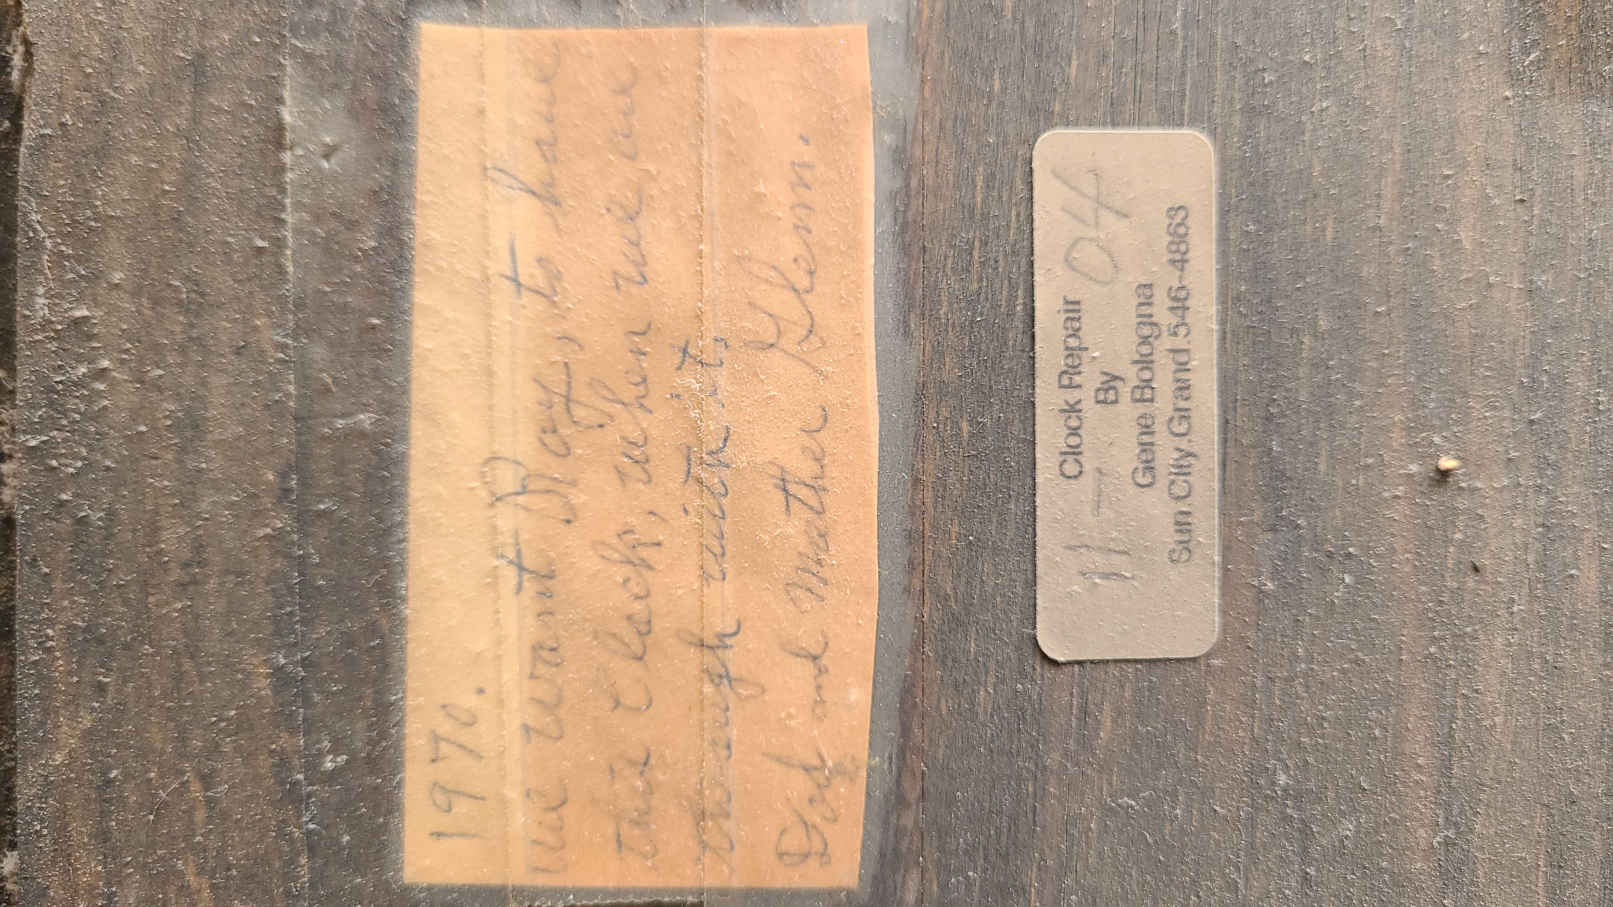 1970.
we want Dray, to have
this Clock, when we are
through with it,
Dad and Mother Glenn.
Clock Repair
By
11 - 04
Gene Bologna
Sun City Grand 546-4863